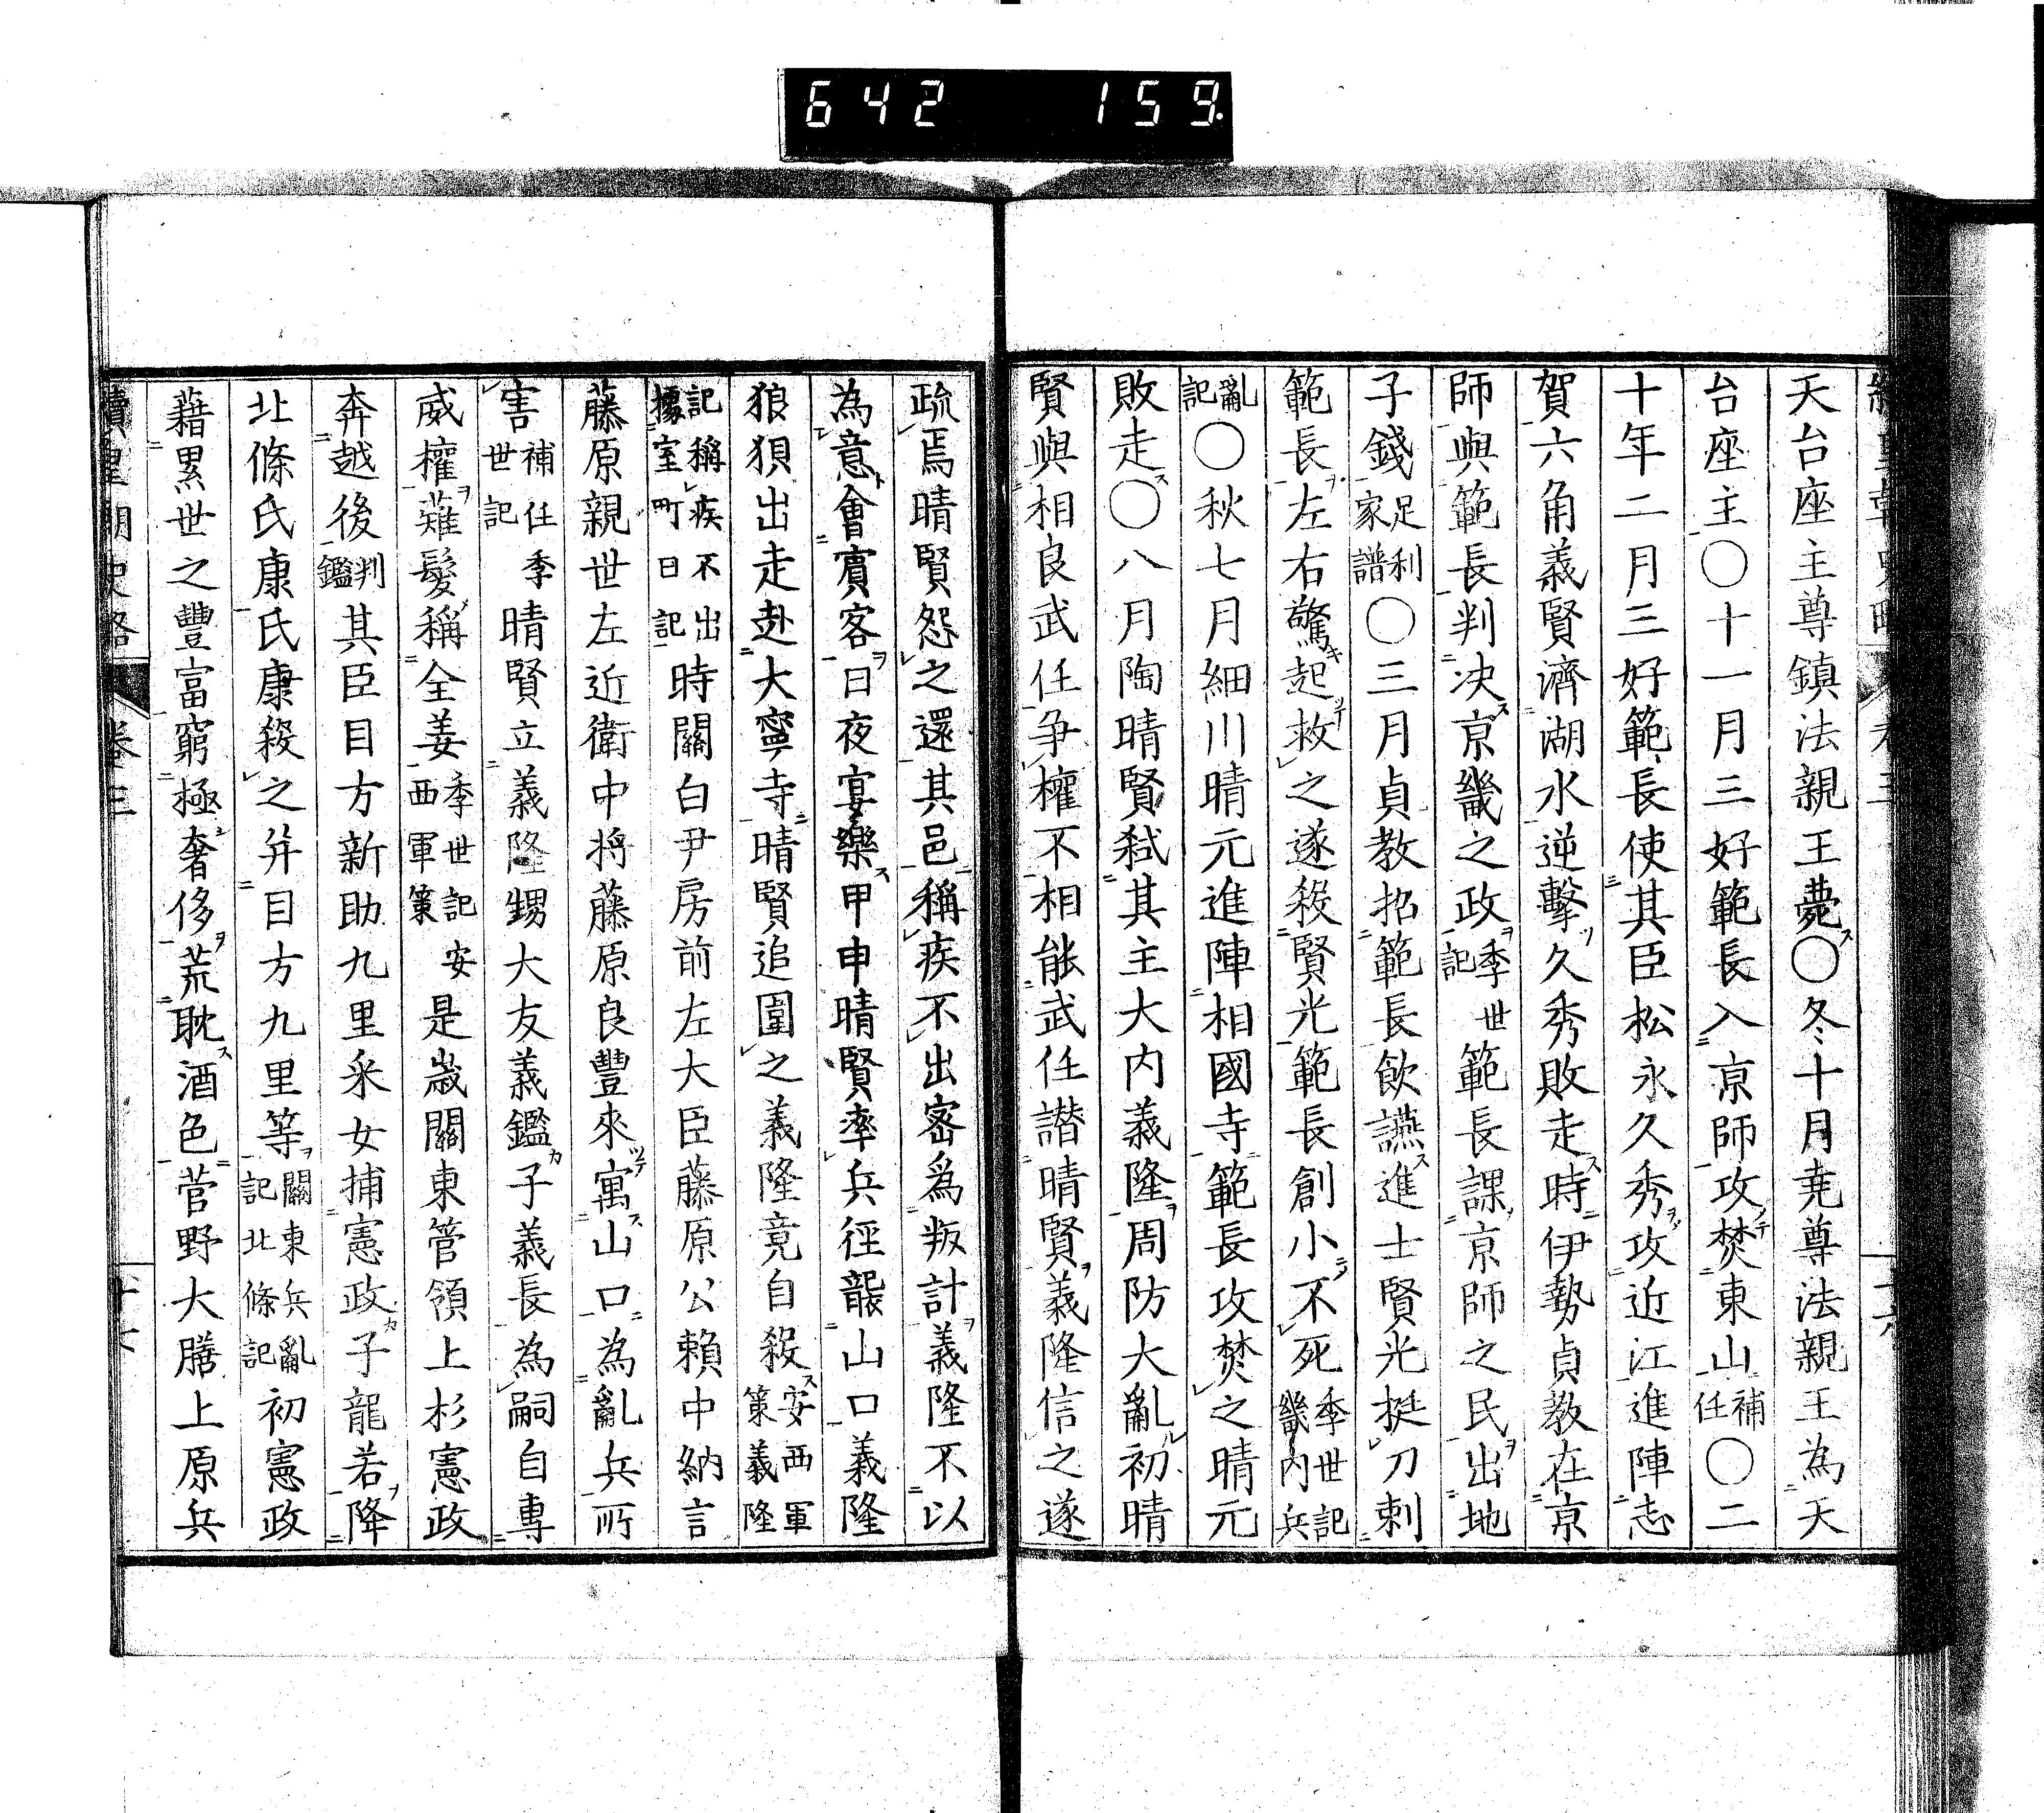 642 159
天台座主尊鎮法親王薨○冬十月堯尊法親王為天
台座主○十一月三好範長入京師攻焚東山補任○二
十年二月三好範長使其臣松永久秀攻近江進陣志
賀六角義賢濟湖水逆擊久秀敗走時伊勢貞教在京
師與範長判决京畿之政季世記範長課京師之民出地
子錢足利家譜○三月貞教招範長飲讌進士賢光挺刀刺
範長左右驚起救之遂殺賢光範長創小不死季世記畿内兵
亂記○秋七月細川晴元進陣相國寺範長攻焚之晴元
敗走○八月陶晴賢弑其主大内義隆周防大亂初晴
賢與相良武任爭權不相能武任譖晴賢義隆信之遂
疏焉晴賢怨之還其邑稱疾不出密為叛計義隆不以
為意會賓客日夜宴樂甲申晴賢率兵徑襲山口義隆
狼狽出走赴大寧寺晴賢追圍之義隆竟自殺安西軍策義隆
記稱疾不出據室町日記時關白尹房前左大臣藤原公賴中納言
藤原親世左近衛中將藤原良豐來寓山口為亂兵所
害補任季世記晴賢立義隆甥大友義鑑子義長為嗣自專
威權薙髮稱全姜季世記安西軍策是歳關東管領上杉憲政
奔越後判鑑其臣目方新助九里采女捕憲政子龍若降
北條氏康氏康殺之并目方九里等關東兵亂記北條記初憲政
藉累世之豐富窮極奢侈荒耽酒色菅野大膳上原兵
續皇朝史略 卷三